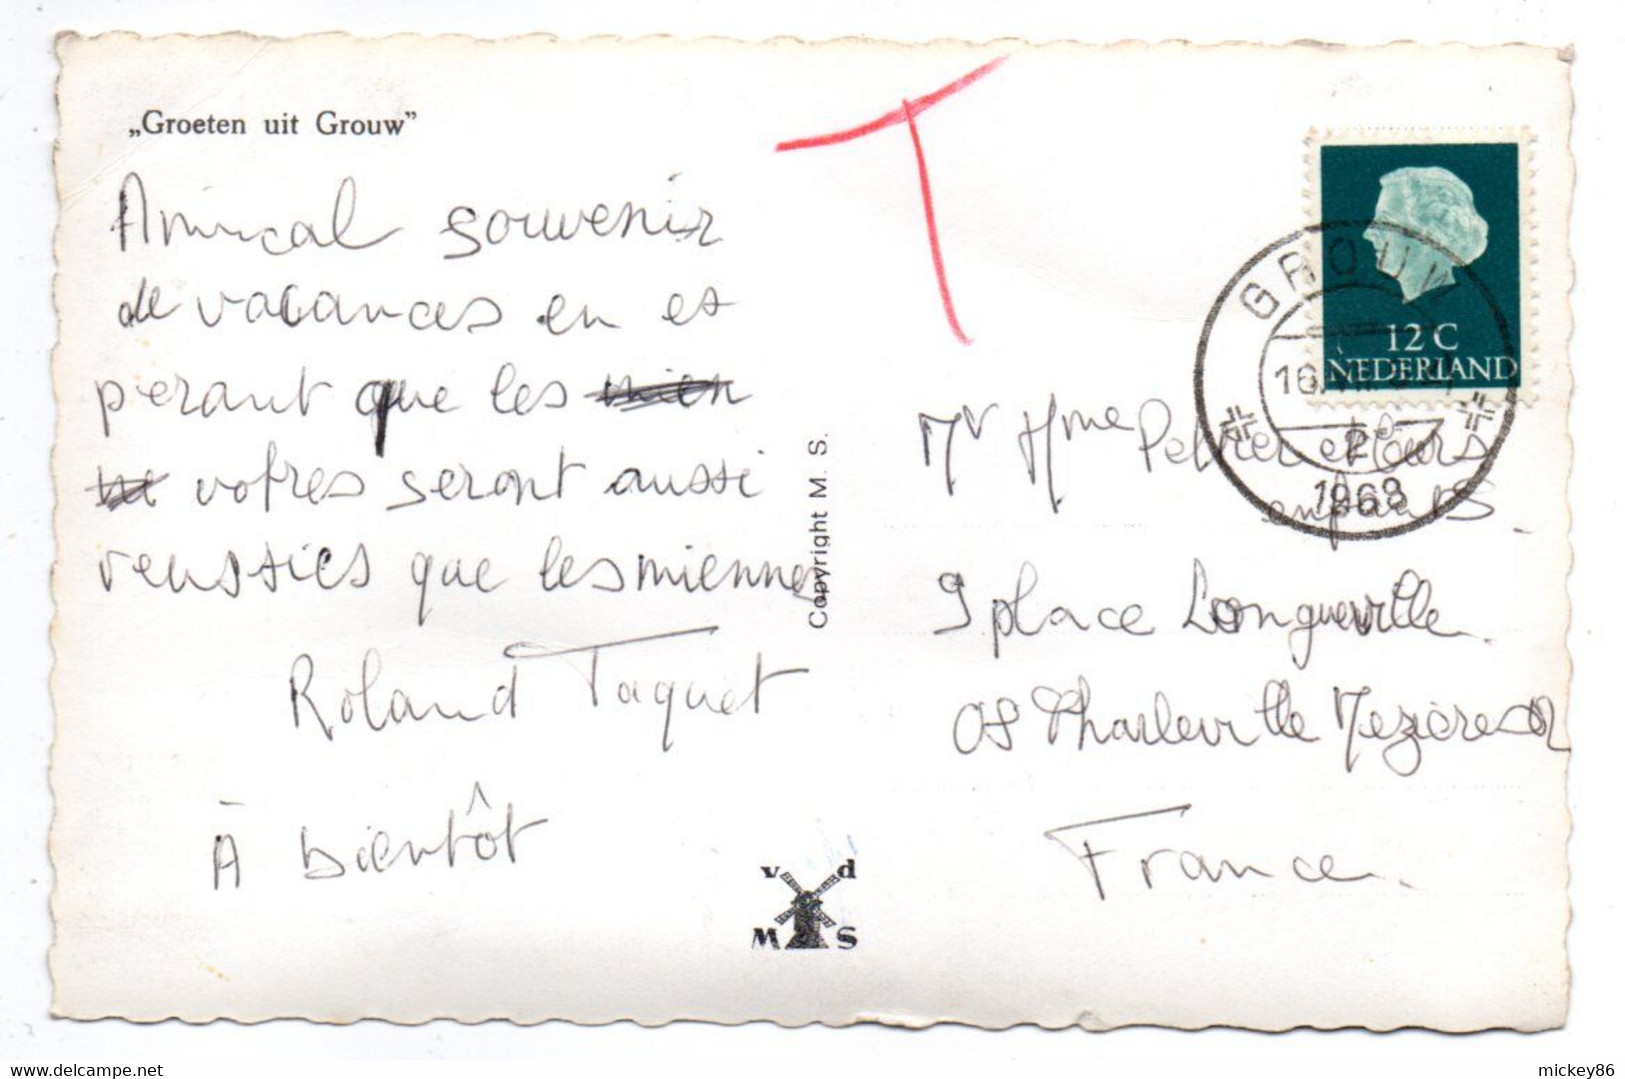 „Groeten uit Grouw”
Amical souvenir
de vacances en es
perant que les
votres seront aussi
reussies que les miennes
Roland Taquet
A bientôt
Copyright M. S.
v d
M S
T
12 C
NEDERLAND
GROUW
1968
Mr Mme Peltier et leurs
enfants.
9 place Longueville
08 Charleville Mezières
France.
mickey86